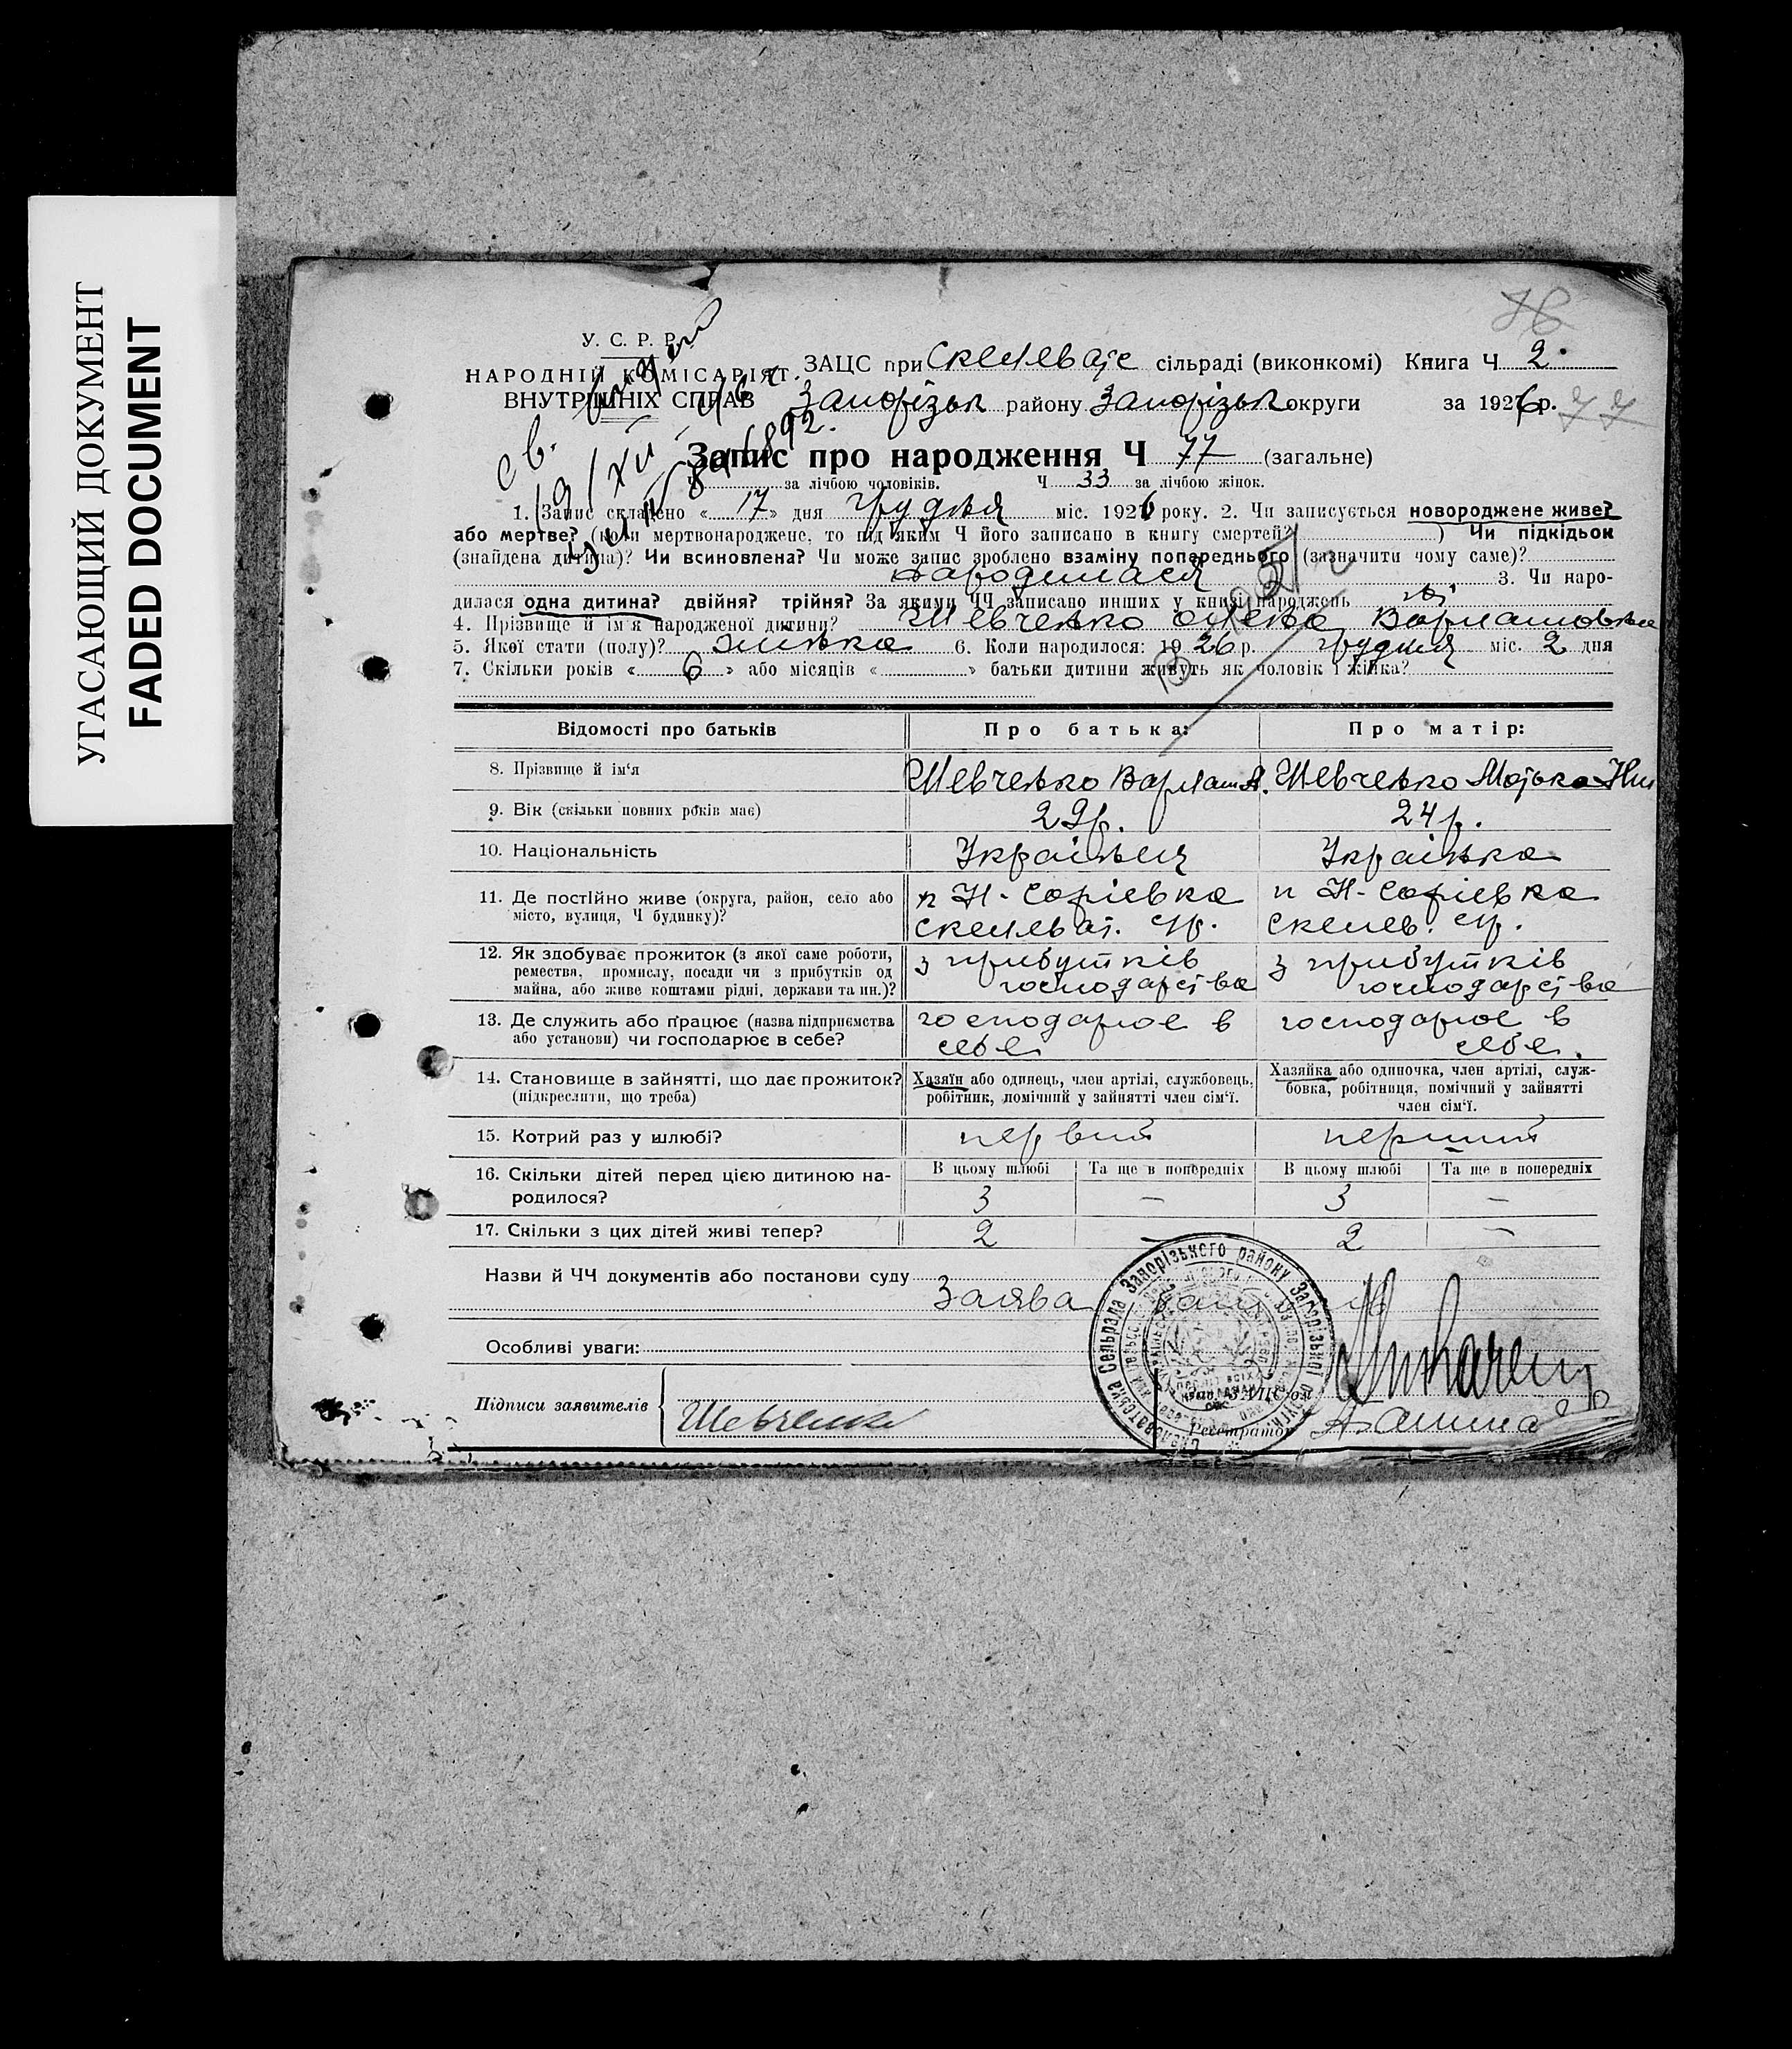 УГАСАЮЩИЙ ДОКУМЕНТ
FADED DOCUMENT
У. С. Р. Р.
НАРОДНІЙ КОМІСАРІЯТ
ВНУТРІШНІХ СПРАВ
76
ЗАЦС при Скелеват сільраді (виконкомі) Книга Ч 2.
Запорізьк району Запорізьк округи за 1926 р. 77
св. видан
19/XII
Запис про народження Ч 77 (загальне)
Ч за лічбою чоловіків. Ч 33 за лічбою жінок.
1. Запис складено « 17 » дня грудня міс. 1926 року. 2. Чи записується новороджене живе?
або мертве? (коли мертвонароджене, то під яким Ч його записано в книгу смертей? ) Чи підкідьок
(знайдена дитина)? Чи всиновлена? Чи може запис зроблено взаміну попереднього (зазначити чому саме)?
народилася 3. Чи наро-
дилася одна дитина? двійня? трійня? За якими ЧЧ записано инших у книзі народжень
4. Прізвище й ім'я народженої дитини? Шевченко Олена Варламовна
5. Якої стати (полу)? жінка 6. Коли народилося: 1926 р. грудня міс. 2 дня
7. Скільки років « 6 » або місяців « » батьки дитини живуть як чоловік і жінка?
Відомості про батьків Про батька: Про матір:
8. Прізвище й ім'я Шевченко Варлам А. Шевченко Мотька
9. Вік (скільки повних років має) 29 р. 24 р.
10. Національність Украінець Украінка
11. Де постійно живе (округа, район, село або
місто, вулиця, Ч будинку)?
п Н-Софіевка
Скелеват. ср.
п Н-Софіевка
Скелев. ср.
12. Як здобуває прожиток (з якої саме роботи,
ремества, промислу, посади чи з прибутків од
майна, або живе коштами рідні, держави та ин.)?
з прибутків
господарства
з прибутків
господарства
13. Де служить або працює (назва підприємства
або установи) чи господарює в себе?
господарює в
себе
господарює в
себе.
14. Становище в зайнятті, що дає прожиток?
(підкреслити, що треба)
Хазяїн або одинець, член артілі, службовець,
робітник, помічний у зайнятті член сім'ї.
Хазяйка або одиночка, член артілі, служ-
бовка, робітниця, помічний у зайнятті
член сім'ї.
15. Котрий раз у шлюбі? первий перший
16. Скільки дітей перед цією дитиною на-
родилося?
В цьому шлюбі Та ще в попередніх В цьому шлюбі Та ще в попередніх
3 — 3 —
17. Скільки з цих дітей живі тепер? 2 — 2 —
Назви й ЧЧ документів або постанови суду
Заява
Особливі уваги:
Підписи заявителів Шевченко
Сельрада Запорізького району Запорізької округи
ЗАЦС-ом
Реєстратор